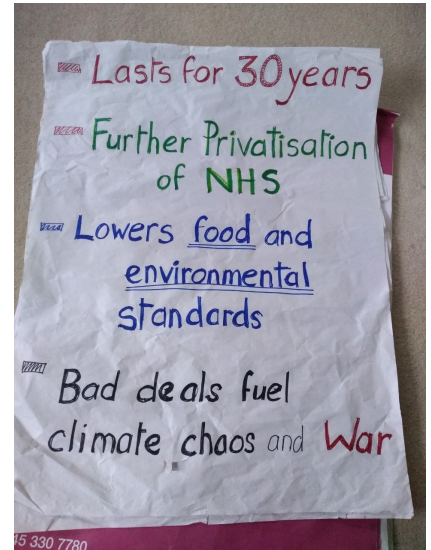 Lasts for 30 years
Further Privatisation
of NHS
Lowers food and
environmental
standards
Bad deals fuel
climate chaos and War
45 330 7780